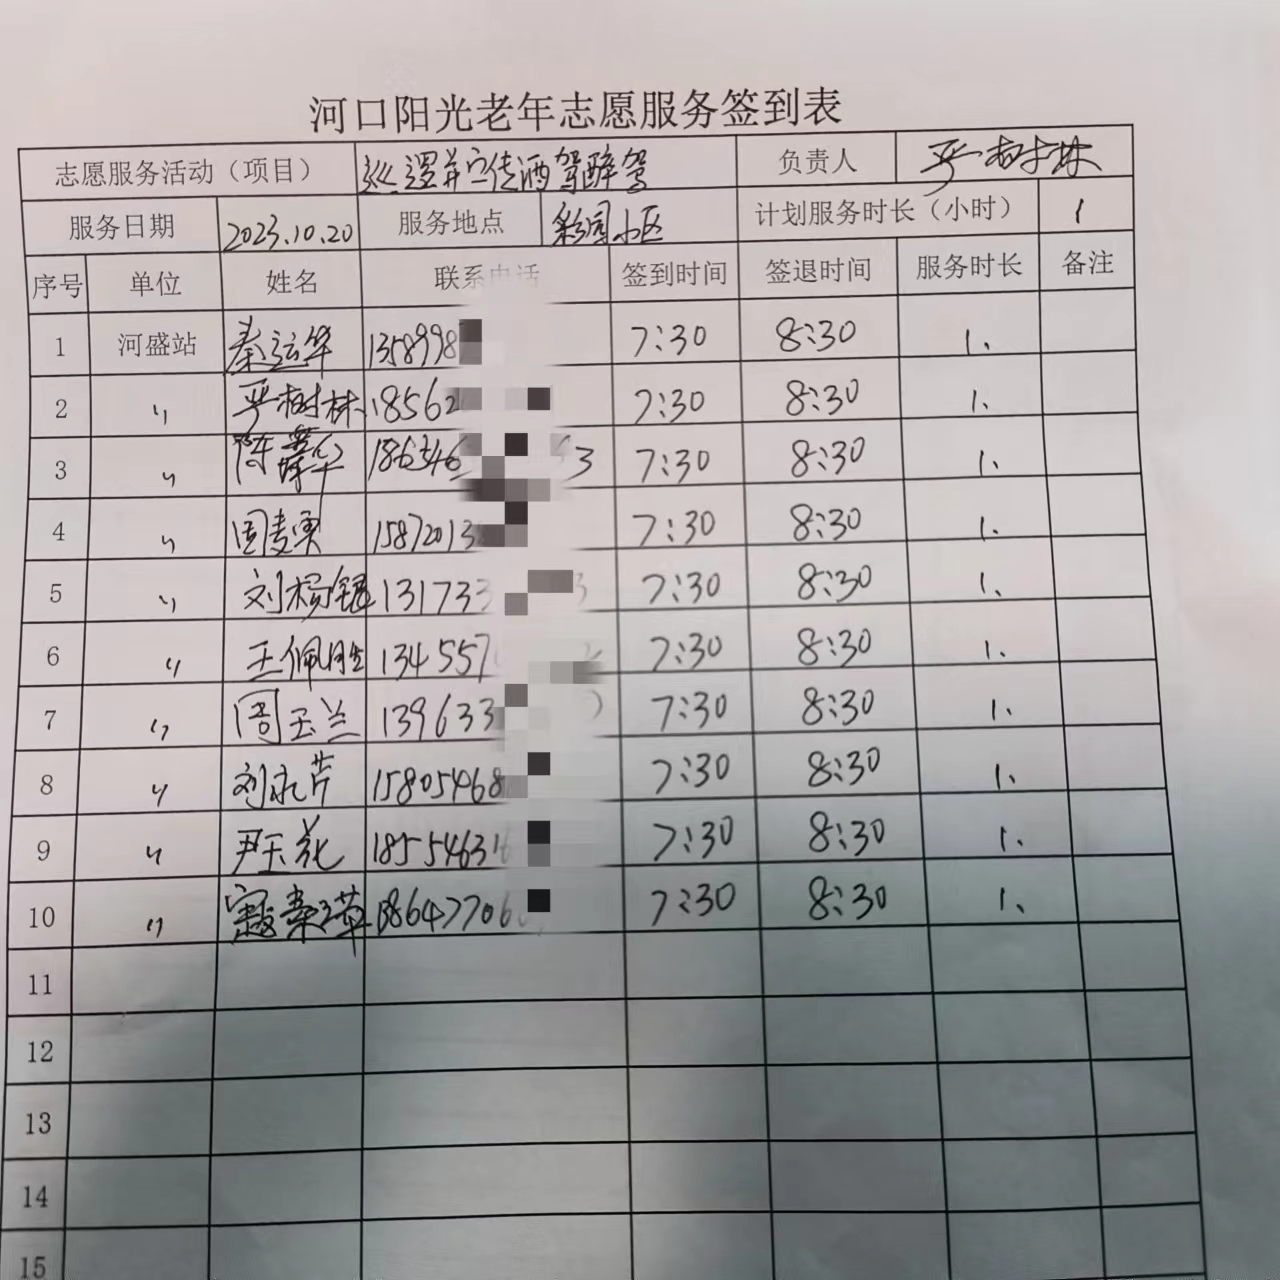 河口阳光老年志愿服务签到表
志愿服务活动（项目） 巡逻并宣传酒驾醉驾 负责人 严树林
服务日期 2023.10.20 服务地点 彩园小区 计划服务时长（小时） 1
序号 单位 姓名 联系电话 签到时间 签退时间 服务时长 备注
1 河盛站 秦运华 1358998 7:30 8:30 1.
2 〃 严树林 18562 7:30 8:30 1.
3 〃 陈 华 186546 3 7:30 8:30 1.
4 〃 周麦 1587201 7:30 8:30 1.
5 〃 刘杨 131733 7:30 8:30 1.
6 〃 王佩 134557 7:30 8:30 1.
7 〃 周玉兰 139633 7:30 8:30 1.
8 〃 刘永芹 15805468 7:30 8:30 1.
9 〃 尹玉花 18554631 7:30 8:30 1.
10 〃 1864770 7:30 8:30 1.
11
12
13
14
15